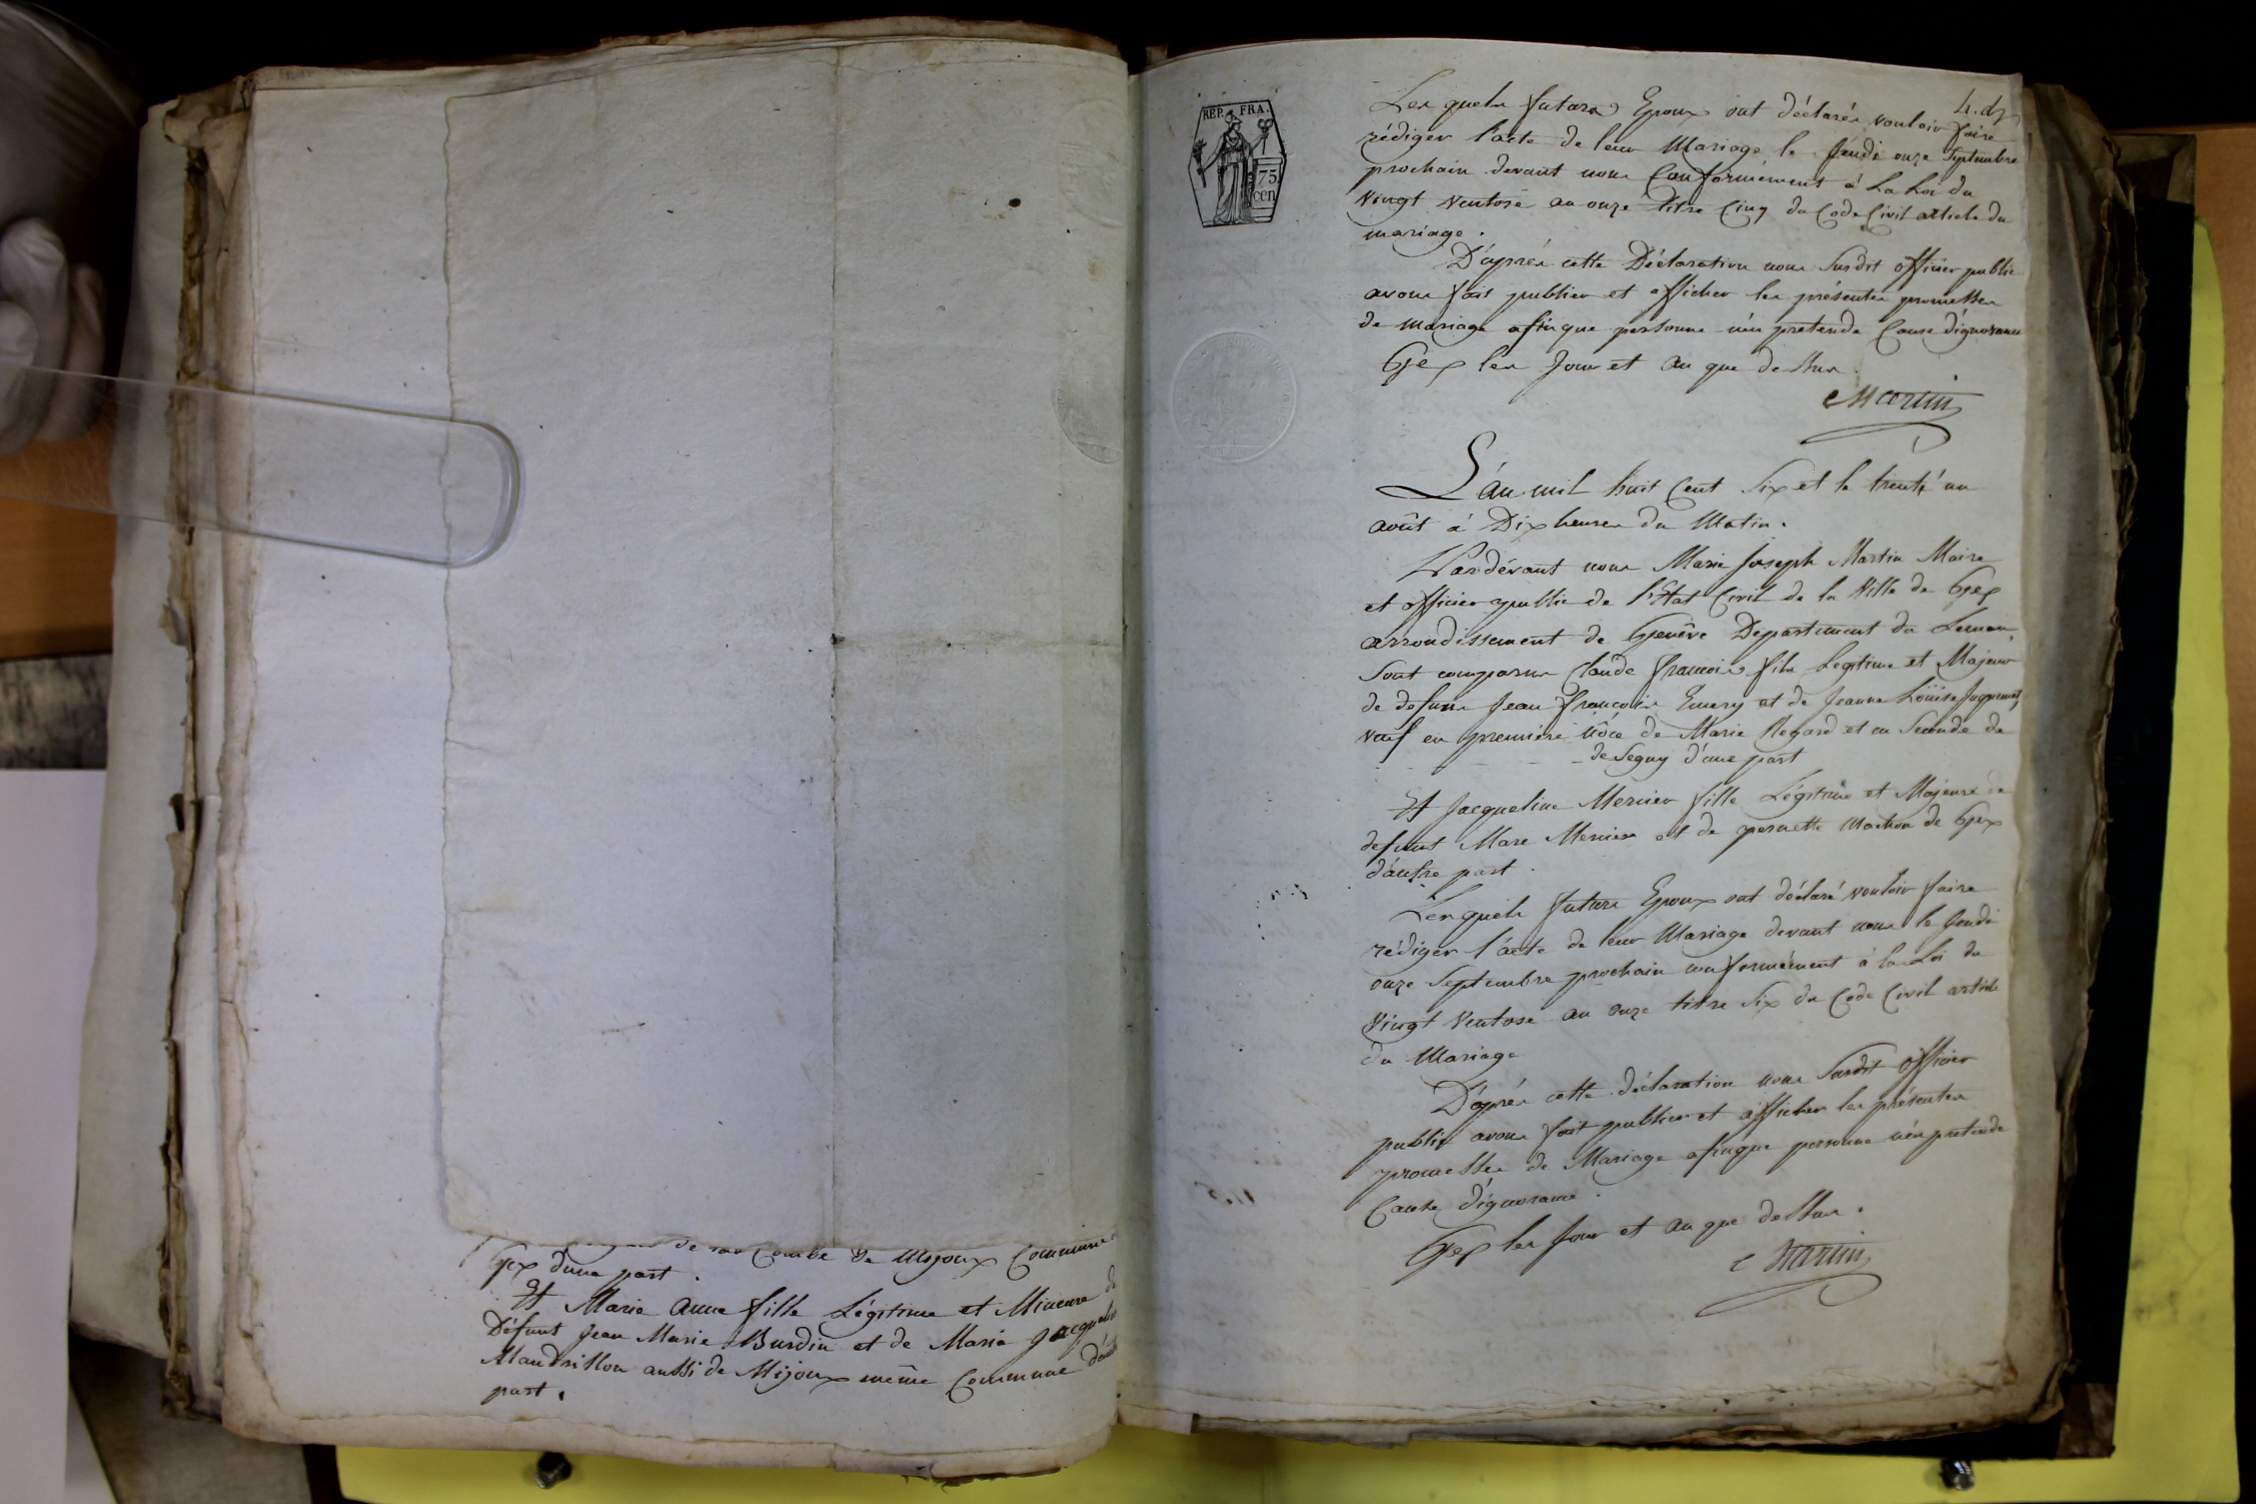 de la Combe de Mijoux Commune
Gex d'une part.
Et Marie Anne fille Légitime et Mineure de
Défunt Jean Marie Burdin et de Marie Jacqueline
Mandrillon aussi de Mijoux même Commune d'autre
part.
REP. FRA.
75
cen
4. d7
Les quels futurs Epoux ont déclarés vouloir faire
rédiger l'acte de leur Mariage le Jeudi onze Septembre
prochain devant nous Conformément à La Loi du
Vingt Ventose an onze titre Cinq du Code Civil article du
mariage.
D'après cette Déclaration nous Susdit officier public
avons fait publier et afficher les présentes promesses
de Mariage afinque personne n'en pretende Cause d'ignorance
Gex les Jour et an que dessus
Martin
L'an mil huit Cent Six et le trente un
août à Dix heures du Matin.
Pardevant nous Marie Joseph Martin Maire
et officier public de l'Etat Civil de la Ville de Gex
arrondissement de Genêve Departement du Leman,
Sont comparus Claude françois fils Legitime et Majeur
de defunt Jean françois Emery et de Jeanne Louise
Veuf en premiere nôce de Marie Regard et en Seconde de
de Segny d'une part
Et Jacqueline Mercier fille Légitime et Majeure de
defunt Marc Mercier et de pernette Machon de Gex
d'autre part.
Lesquels futurs Epoux ont déclaré vouloir faire
rédiger l'acte de leur Mariage devant nous le Jeudi
onze Septembre prochain conformément à la Loi du
Vingt Ventose an onze titre Six du Code Civil article
du Mariage
D'après cette déclaration nous Susdit officier
public avons fait publier et afficher les présentes
promesses de Mariage afinque personne n'en pretende
Cause d'ignorance.
Gex les Jour et an que dessus.
Martin